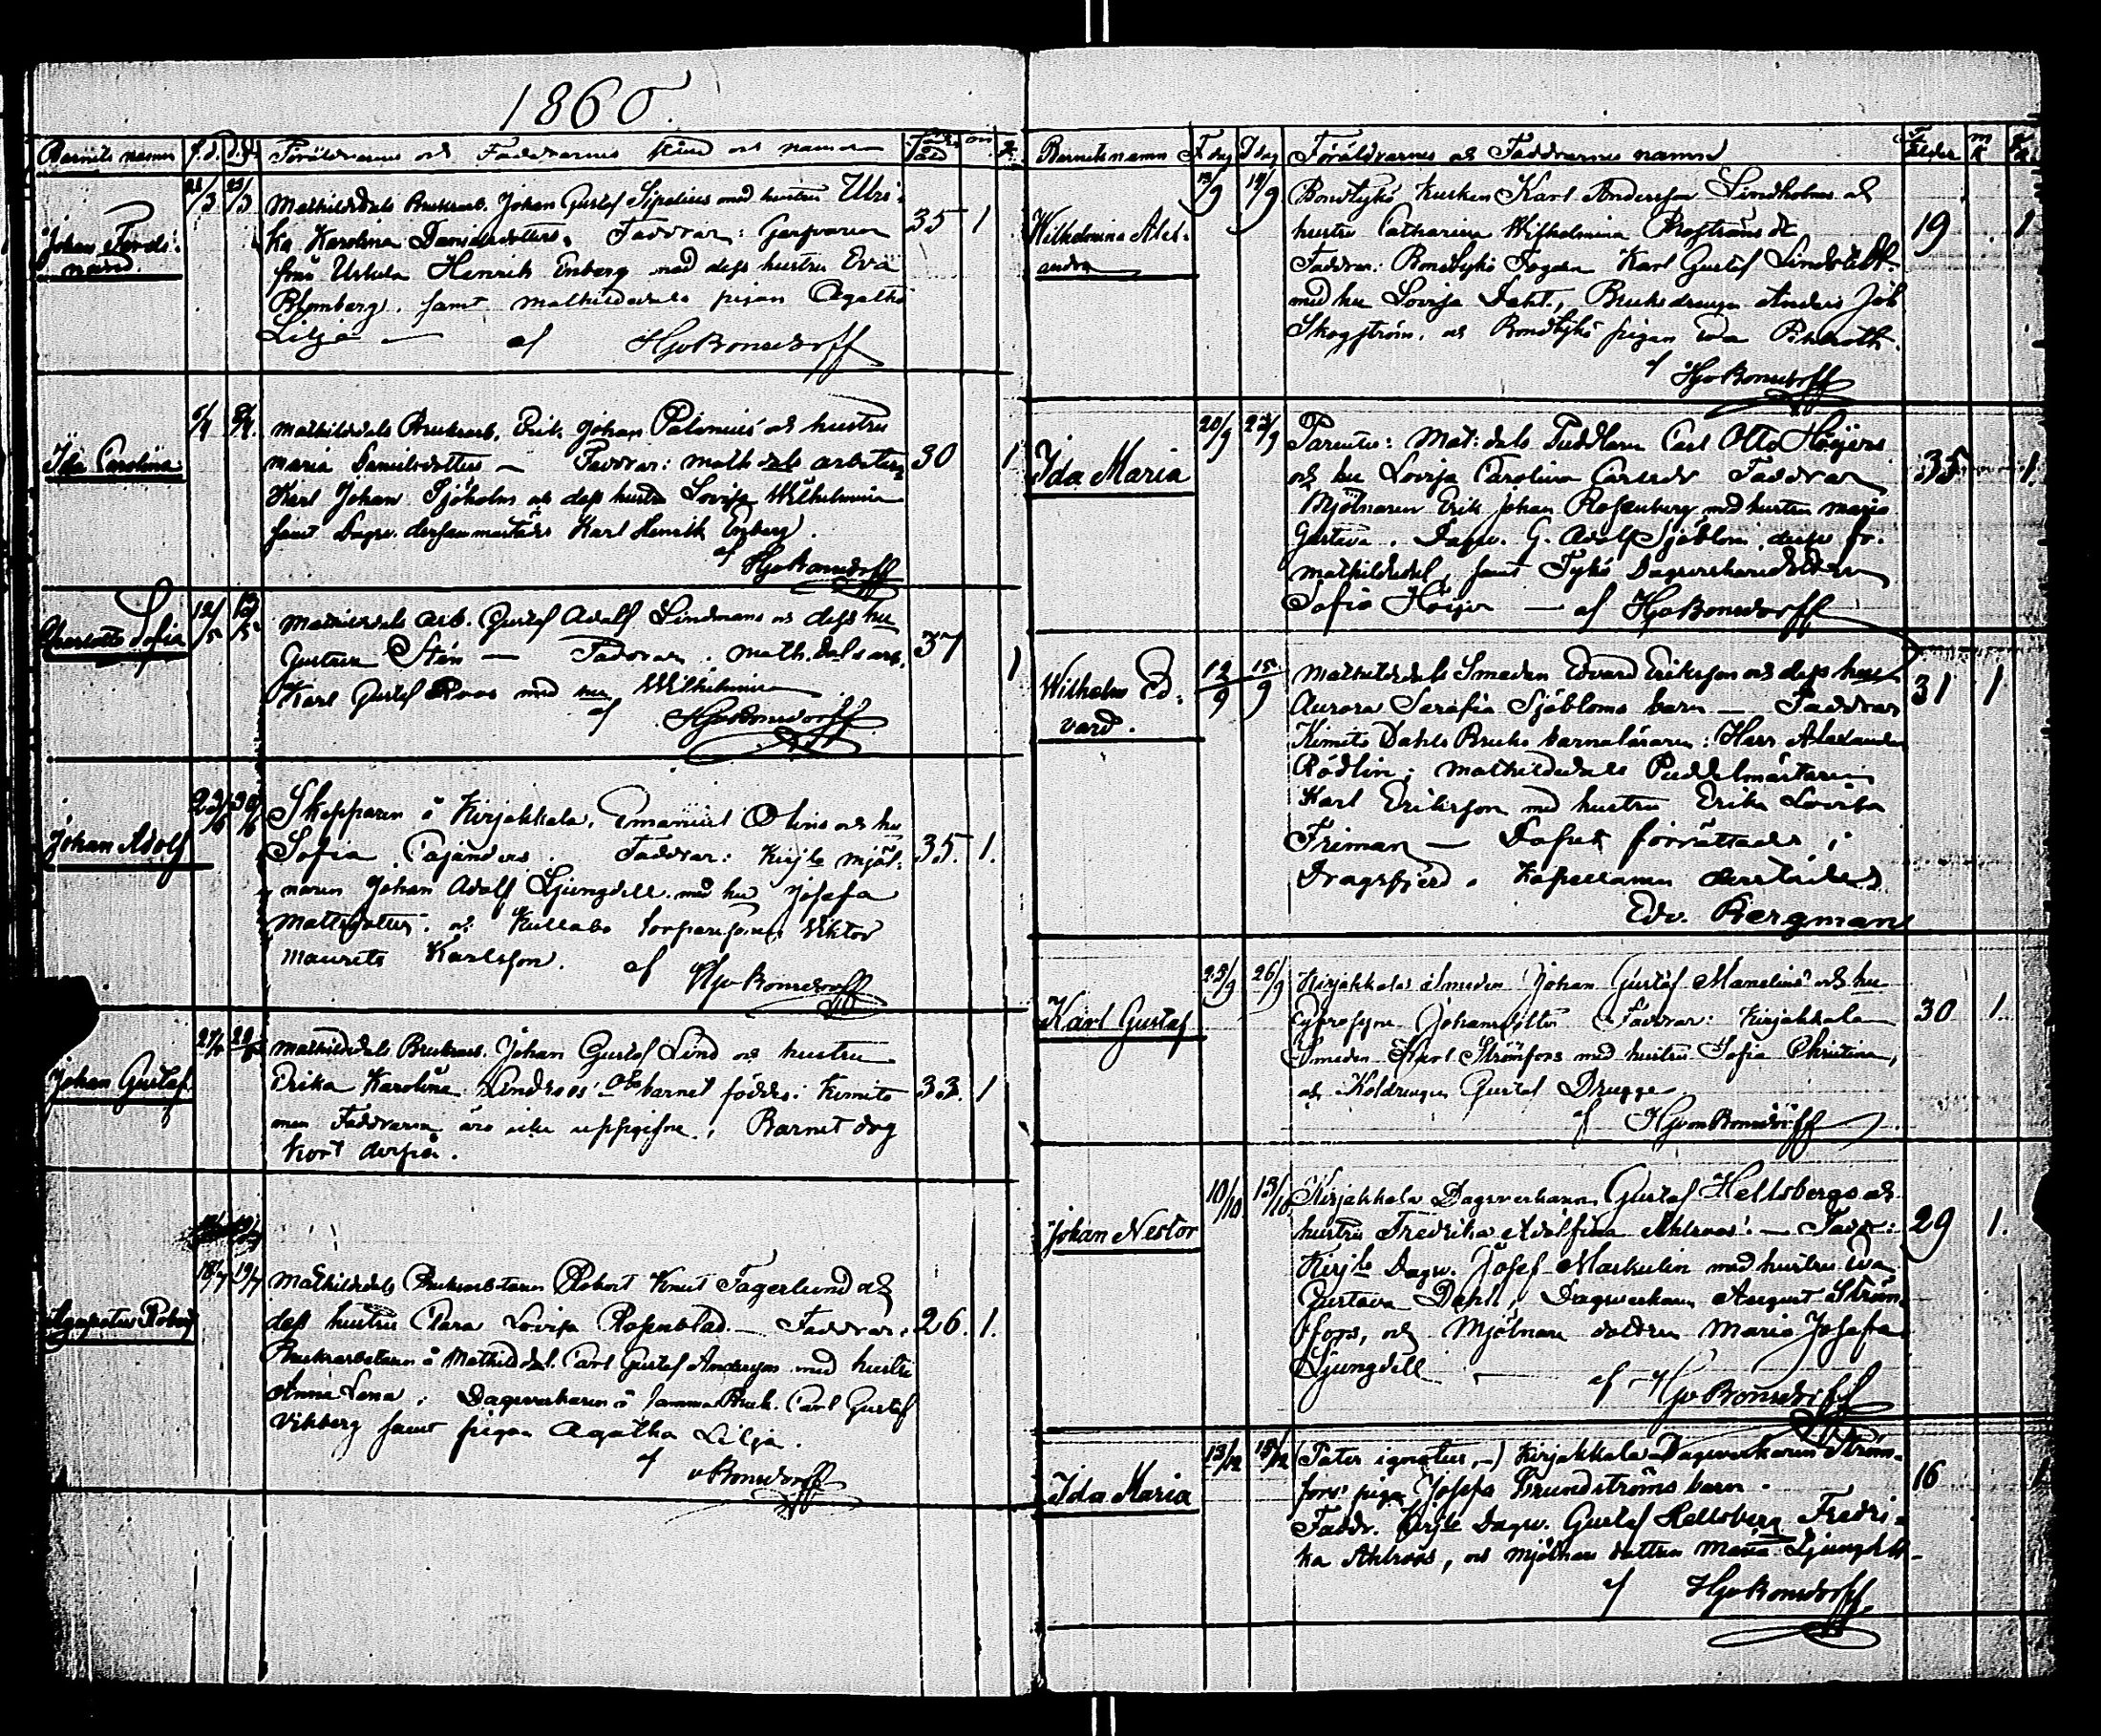 1860.
Barnets namn f.d. d.d. Föräldrarnes och Faddrarnes stånd och namn
21/3 25/3 Mathildedals Bruksarb. Johan Gustaf Sipelius med hustru Ulri-
Johan Ferdi-
nand.
ka Karolina Danielsdotters. Faddrar: Garfvaren 35 1
från Uskela Henrik Enberg med dess hustru Eva
Blomberg, samt Mathildedals pigan Agatha
Lilja — af HJvBonsdorff
Mathildedals Bruksarb. Erik Johan Palenius och hustru
Ida Carolina Maria Danielsdotters — Faddrar: Math.dals arbetaren 30 1
Karl Johan Sjöholm och dess hustru Lovisa Wilhelmina
samt Dagsv. dersammastädes Karl Henrik Enberg.
af HJvBonsdorff
12/5 13/5 Mathildedals Arb. Gustaf Adolf Lindmans och dess hu
Charlotta Sofia Gustava Stén — Faddrar: Math.dals arb. 37 1
Karl Gustaf Roos med hu Wilhelmina
af HJvBonsdorff
Skepparen å Kirjakkala, Emanuel Olins och hu
Johan Adolf Sofia Cajanders. Faddrar: Kirjla mjöl- 35. 1.
naren Johan Adolf Ljungdell med hu Josefa
Mattsdotter; och Kullabo torparesonen Viktor
Maurits Karlsson. af HJvBonsdorff
Mathildedals Bruksarb. Johan Gustaf Lind och hustru
Johan Gustaf Erika Karolina Lindroos' barnet föddes i Kimito 33. 1
men Faddrarne äro icke uppgifne. Barnet dog
kort derpå.
18/7 19/7 Mathildedals Bruksarbetaren Robert Knut Fagerlund och
Agapetus Robert dess hustru Clara Lovisa Rosenblad. — Faddrar: 26. 1.
Bruksarbetaren å Mathildedal. Carl Gustaf Andersson med hustru
Anna Lena; Dagsverkaren å samma Bruk. Carl Gustaf
Vikberg samt pigan Agatha Lilja.
af vBonsdorff
Barnets namn F dag D dag Föräldrarnes och Faddrarnes namn
Wilhelmina Alex-
andra
13/9 14/9 Bondtykö Kusken Karl Andersson Lindholms och
hustru Catharina Wilhelmina 19 1
Faddrar: Bondtykö Fogden Karl Gustaf Lindstedt
med hu Lovisa Dahl, Bruksdrengen Anders Joh
Skogström, och Bondtykö pigan Eva
af HJvBonsdorff
20/9 23/9 Parentes: Mat:dals Puddlaren Carl Otto Höijers
Ida Maria och hu Lovisa Carolina Carlsdr Faddrar 35 1.
Mjölnaren Erik Johan Rosenberg med hustru Maria
Gustava. Dagsv. G. Adolf Sjöblom, desse fr.
Mathildedal, samt Tykö Dagsverkaredottren
Sofia Höijer — af HJvBonsdorff
Wilhelm Ed-
vard.
12/9 15/9 Mathildedals Smeden Edvard Eriksson och dess hustru 31 1
Aurora Serafia Sjöbloms barn — Faddrar
Kimito Dahls Bruks barnaläraren: Herr Alexander
Rödlin; Mathildedals Puddelmästaren
Karl Eriksson med hustru Erika Lovisa
Friman — Dopet förrättades i
Dragsfjerd af Kapellanen derstädes
Edv. Bergman
23/9 26/9 Kirjakkala Smeden Johan Gustaf Mamelins och hu
Karl Gustaf Johansdotter Faddrar: Kirjakkala 30 1.
Smeden Karl Strömfors med hustru Sofia Christina,
och Koldrengen Gustaf Drugge
af HJvonBonsdorff
10/10 13/10 Kirjakkala Dagsverkaren Gustaf Hellsbergs och
Johan Nestor hustru Fredrika Adolfina Ahlroos'. — Faddr: 29 1.
Kirjla Dagsv. Josef Maskulin med hustru Eva
Gustava Dahl, Dagsverkaren August Ström-
fors, och Mjölnare dottren Maria Josefa
Ljungdell — af HJvBonsdorff
13/12 15/12 (Pater ignotus,) Kirjakkala Dagsverkaren Ström-
Ida Maria fors' piga Josefa Grundströms barn. 16 1
Faddr. Kirjla Dagsv. Gustaf Hellsberg Fredri-
ka Ahlroos, och mjölnare dottren Maria Ljungdell
af HJvBonsdorff